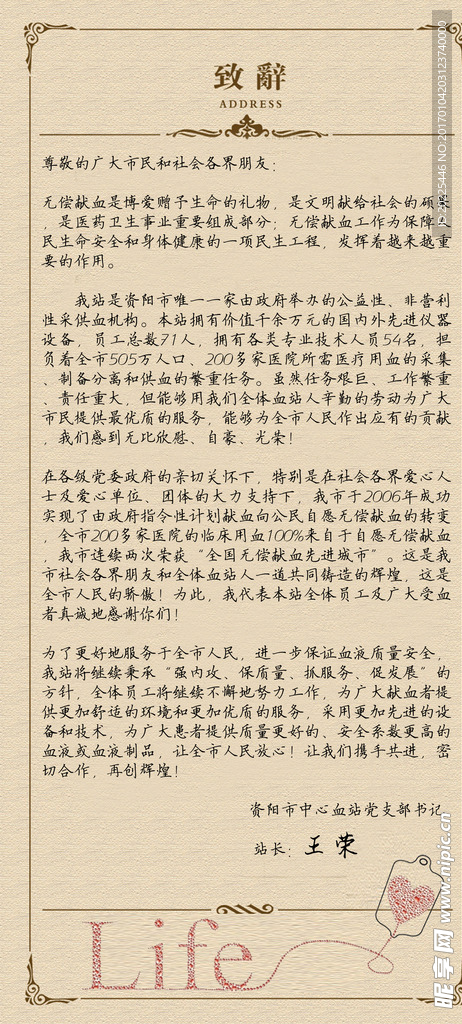 致辭
ADDRESS
尊敬的广大市民和社会各界朋友：
无偿献血是博爱赠予生命的礼物，是文明献给社会的硕果
，是医药卫生事业重要组成部分；无偿献血工作为保障人
民生命安全和身体健康的一项民生工程，发挥着越来越重
要的作用。
我站是资阳市唯一一家由政府举办的公益性、非营利
性采供血机构。本站拥有价值千余万元的国内外先进仪器
设备，员工总数71人，拥有各类专业技术人员54名，担
负着全市505万人口、200多家医院所需医疗用血的采集
、制备分离和供血的繁重任务。虽然任务艰巨、工作繁重
、责任重大，但能够用我们全体血站人辛勤的劳动为广大
市民提供最优质的服务，能够为全市人民作出应有的贡献
，我们感到无比欣慰、自豪、光荣！
在各级党委政府的亲切关怀下，特别是在社会各界爱心人
士及爱心单位、团体的大力支持下，我市于2006年成功
实现了由政府指令性计划献血向公民自愿无偿献血的转变
，全市200多家医院的临床用血100%来自于自愿无偿献血
，我市连续两次荣获“全国无偿献血先进城市”。这是我
市社会各界朋友和全体血站人一道共同铸造的辉煌，这是
全市人民的骄傲！为此，我代表本站全体员工及广大受血
者真诚地感谢你们！
为了更好地服务于全市人民，进一步保证血液质量安全，
我站将继续秉承“强内攻、保质量、抓服务、促发展”的
方针，全体员工将继续不懈地努力工作，为广大献血者提
供更加舒适的环境和更加优质的服务，采用更加先进的设
备和技术，为广大患者提供质量更好的、安全系数更高的
血液或血液制品，让全市人民放心！让我们携手共进，密
切合作，再创辉煌！
资阳市中心血站党支部书记
站长：王荣
Life
昵享网 www.nipic.cn
NO:20170104203123740000